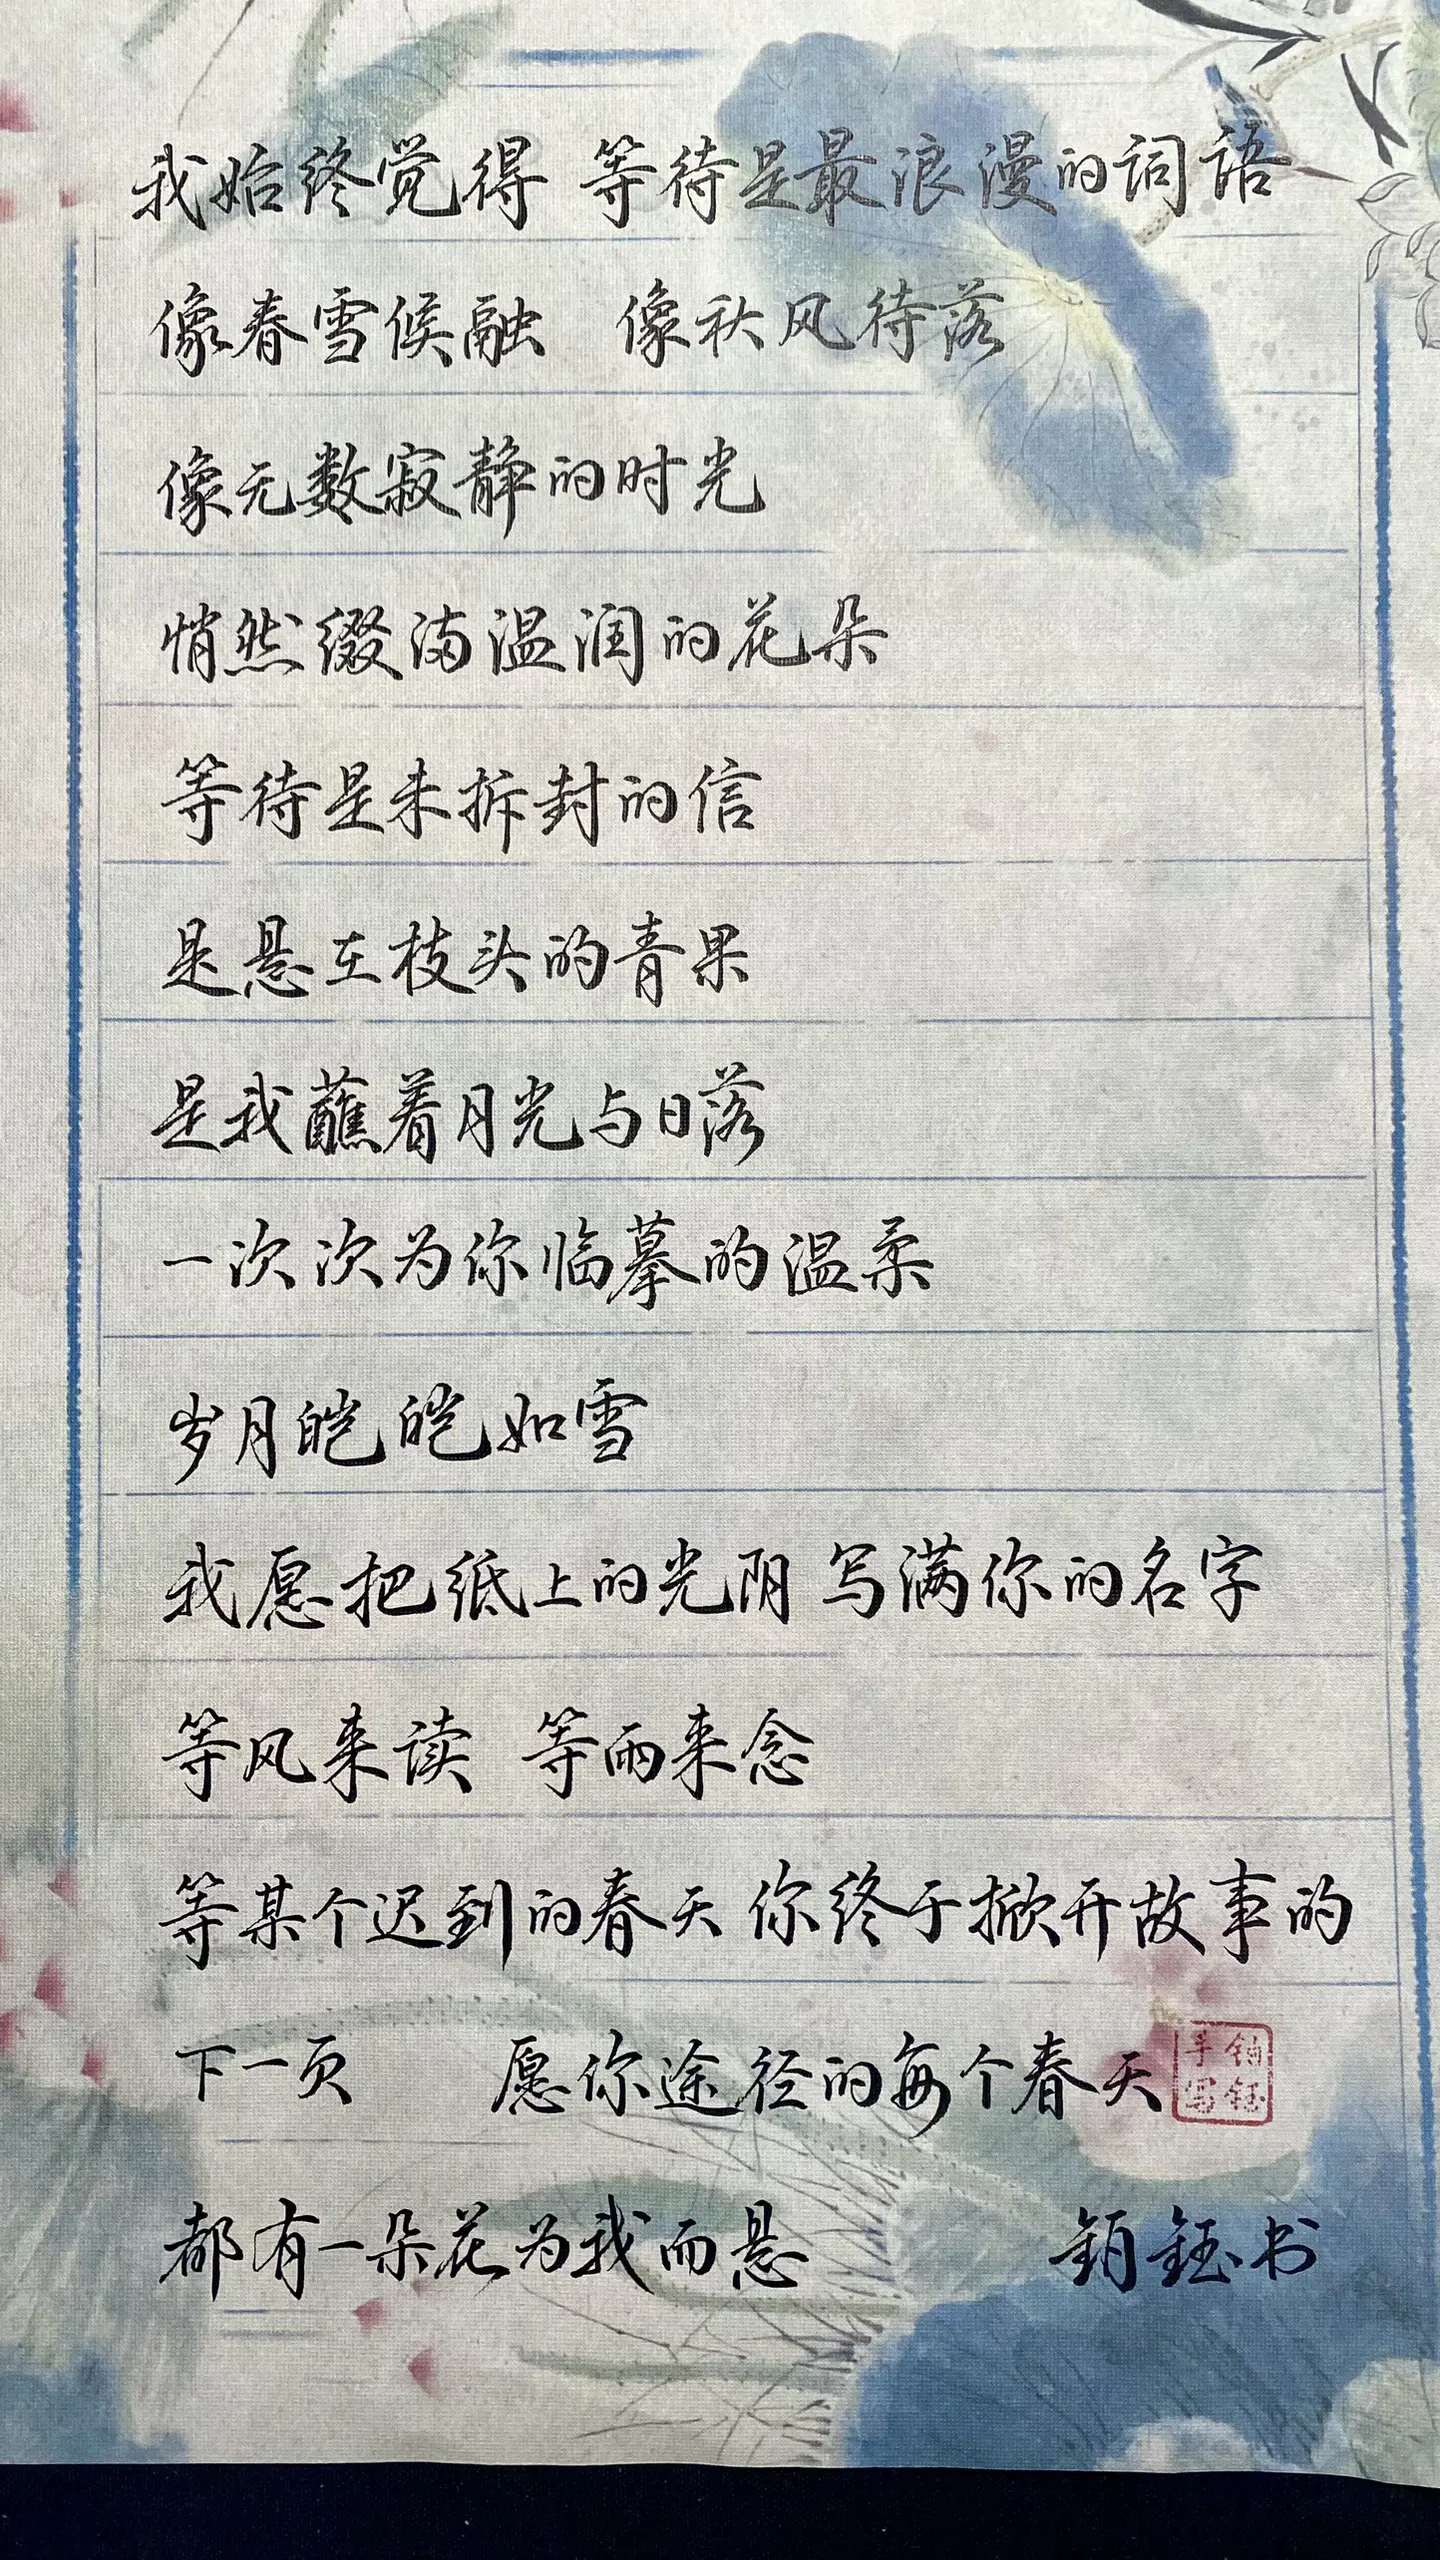 我始终觉得 等待是最浪漫的词语
像春雪候融 像秋风待落
像无数寂静的时光
悄然缀满温润的花朵
等待是未拆封的信
是悬在枝头的青果
是我蘸着月光与日落
一次次为你临摹的温柔
岁月皑皑如雪
我愿把纸上的光阴 写满你的名字
等风来读 等雨来念
等某个迟到的春天 你终于掀开故事的
下一页 愿你途径的每个春天
钰
手写
都有一朵花为我而悬 钰书